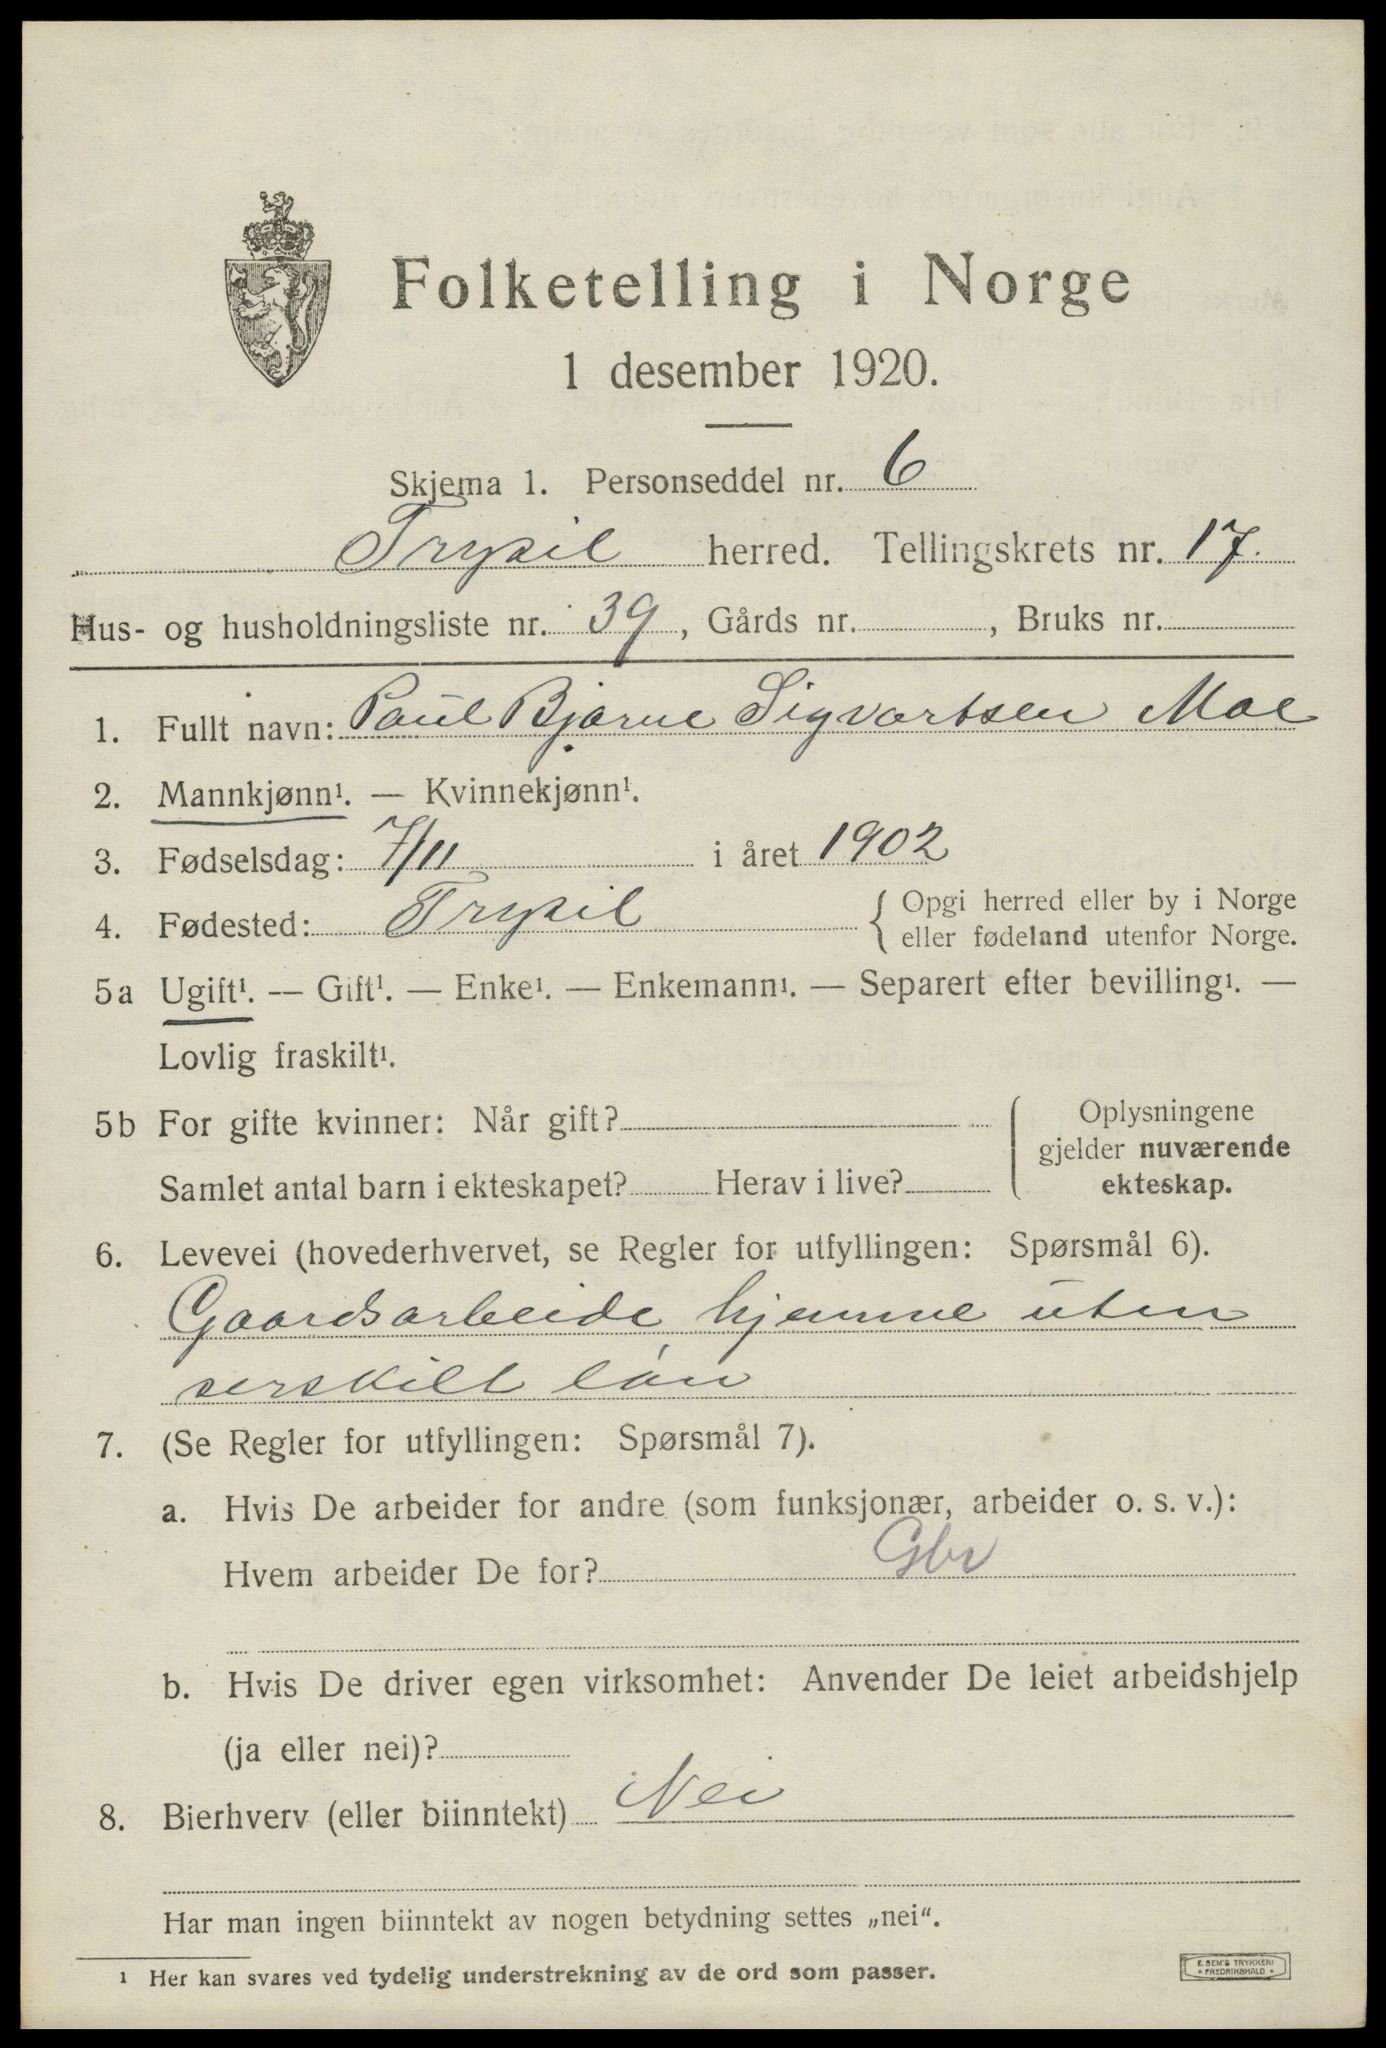 Folketelling i Norge
1 desember 1920.
Skjema 1. Personseddel nr. 6
Trysil herred. Tellingskrets nr. 17.
Hus- og husholdningsliste nr. 39, Gårds nr. , Bruks nr.
1. Fullt navn: Paul Bjarne Sigvartsen Moe
2. Mannkjønn¹. — Kvinnekjønn¹.
3. Fødselsdag: 7/11 i året 1902
4. Fødested: Trysil { Opgi herred eller by i Norge
eller fødeland utenfor Norge.
5a Ugift¹. — Gift¹. — Enke¹. — Enkemann¹. — Separert efter bevilling¹. —
Lovlig fraskilt¹.
5b For gifte kvinner: Når gift?
Samlet antal barn i ekteskapet? Herav i live?
Oplysningene
gjelder nuværende
ekteskap.
6. Levevei (hovederhvervet, se Regler for utfyllingen: Spørsmål 6).
Gaardsarbeide hjemme uten
serskilt løn
7. (Se Regler for utfyllingen: Spørsmål 7).
a. Hvis De arbeider for andre (som funksjonær, arbeider o. s. v.):
Hvem arbeider De for? Gbr
b. Hvis De driver egen virksomhet: Anvender De leiet arbeidshjelp
(ja eller nei)?
8. Bierhverv (eller biinntekt) Nei
Har man ingen biinntekt av nogen betydning settes „nei“.
¹ Her kan svares ved tydelig understrekning av de ord som passer.
E. SEM'S TRYKKERI
• FREDRIKSHALD •